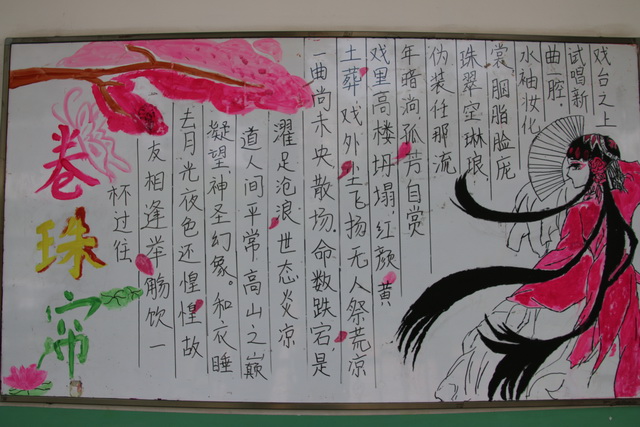 卷珠帘
戏台之上
试唱新
曲一腔
水袖妆化
裳,胭脂脸庞
珠翠空琳琅
伪装任那流
年暗淌孤芳自赏
戏里高楼坍塌,红颜黄
土葬,戏外尘飞扬无人祭荒凉
一曲尚未央散场。命数跌宕,是
濯足沧浪世态炎凉
道人间平常高山之巅
凝望,神圣幻象。和衣睡
去月光夜色还惶惶故
友相逢举觞饮一
杯过往